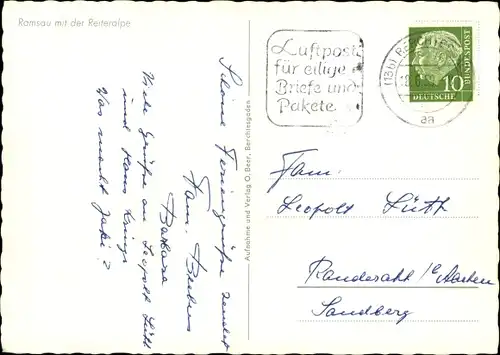 Ramsau mit der Reiteralpe
Luftpost
für eilige
Briefe und
Pakete
(13b) BERCHTES
aa
10
DEUTSCHE
BUNDESPOST
Aufnahme und Verlag O. Beer, Berchtesgaden
Schöne Feriengrüße sendet
Fam.
Barbara
Viele Grüße an Leopold Lüth
und Hans
Was macht
Fam:
Leopold Lüth
/ Aachen
Sandberg